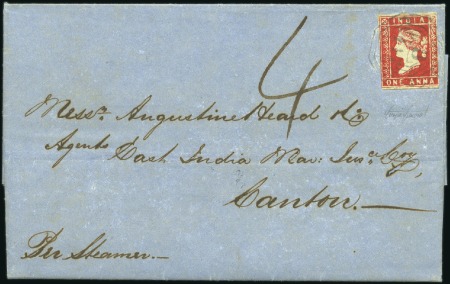 INDIA
ONE ANNA
4
Messrs. Augustine Heard & Co
Agents East India Mar: Insce Coy,
Canton.—
Per Steamer.—